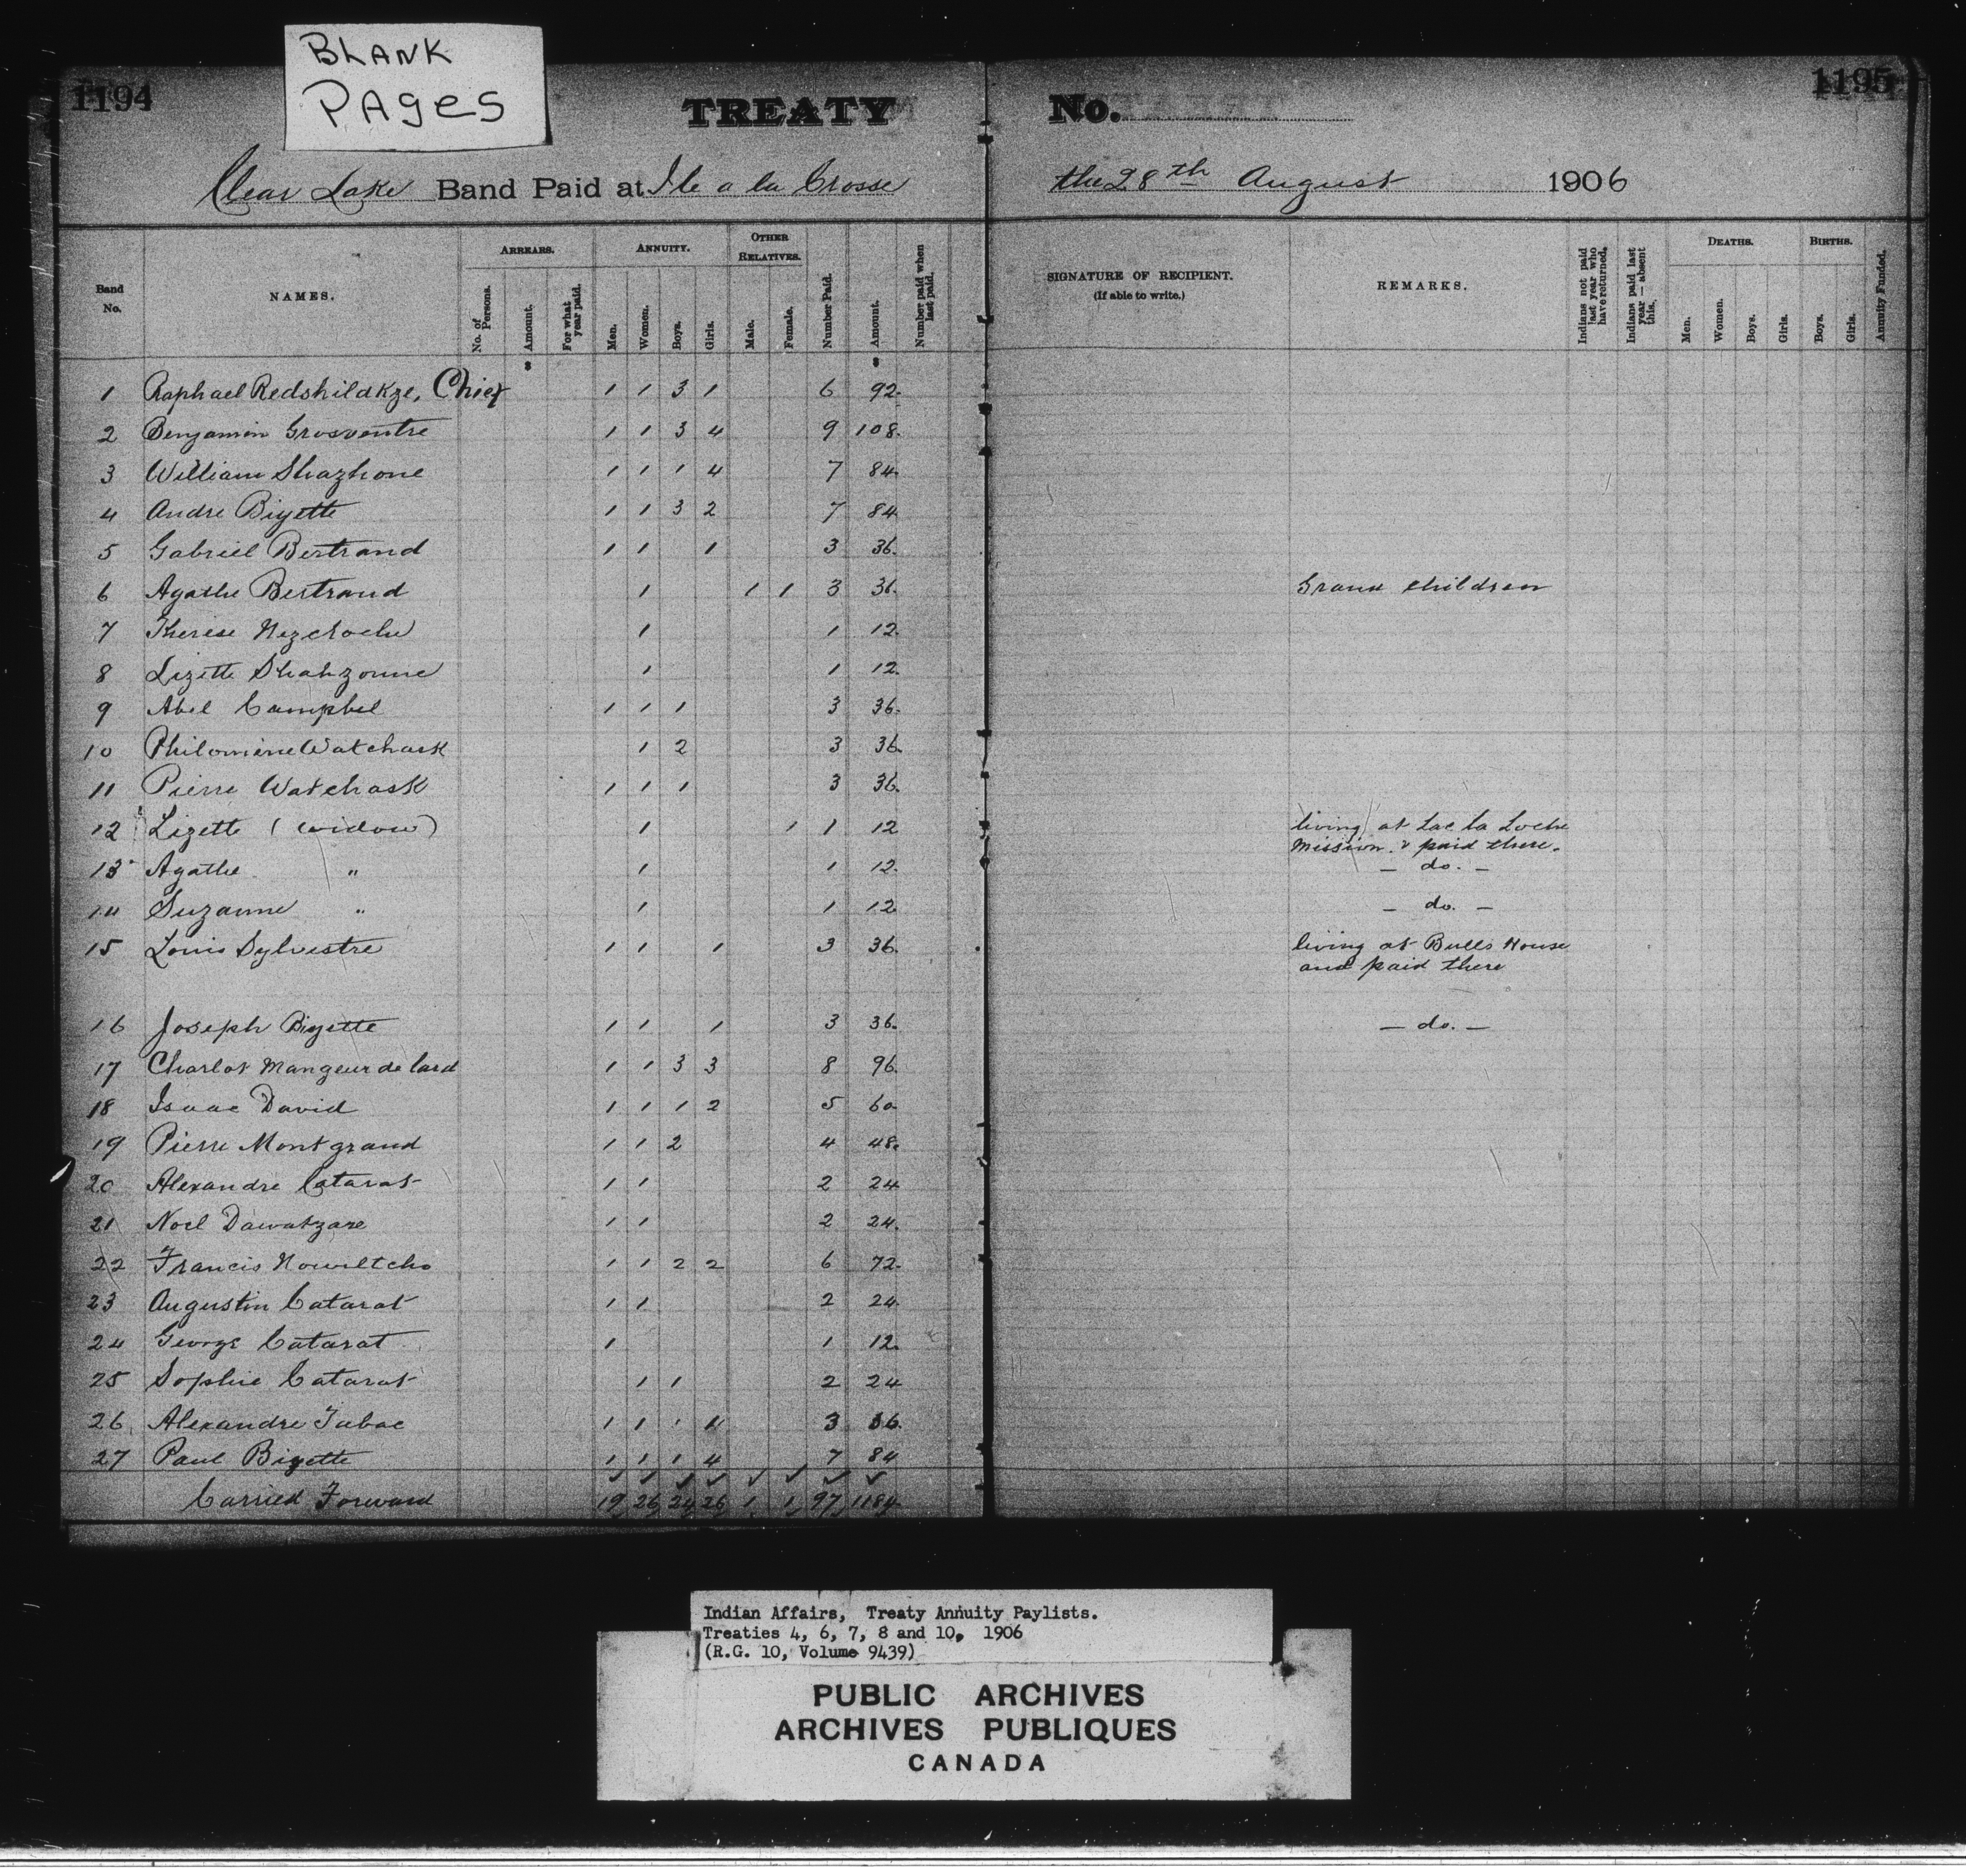 BLANK
PAGES
1194
1195
TREATY No.
Clear Lake Band Paid at Ile a la Crosse the 28th August 1906
Band No.
NAMES.
ARREARS.
No. of Persons.
Amount.
For what year paid.
ANNUITY.
Men.
Women.
Boys.
Girls.
OTHER RELATIVES.
Male.
Female.
Number Paid.
Amount.
Number paid when last paid.
SIGNATURE OF RECIPIENT.
(If able to write.)
REMARKS.
Indians not paid last year who have returned.
Indians paid last year — absent this.
DEATHS.
Men.
Women.
Boys.
Girls.
BIRTHS.
Boys.
Girls.
Annuity Funded.
$ $
1 Raphael Redshildkze, Chief 1 1 3 1 6 92.
2 Benjamin Grosventre 1 1 3 4 9 108.
3 William Shazhone 1 1 1 4 7 84.
4 Andre Bigette 1 1 3 2 7 84
5 Gabriel Bertrand 1 1 1 3 36.
6 Agathe Bertrand 1 1 1 3 36. Grand children
7 Therese 1 1 12.
8 Lizette Shahzonne 1 1 12.
9 Abel Campbel 1 1 1 3 36.
10 Philomene Watchask 1 2 3 36.
11 Pierre Watchask 1 1 1 3 36.
12 Lizette (widow) 1 1 1 12 living at Lac la Loche
Mission & paid there.
13 Agathe " 1 1 12. — do. —
14 Suzanne " 1 1 12 — do. —
15 Louis Sylvestre 1 1 1 3 36. living at Bulls House
and paid there
16 Joseph Bigette 1 1 1 3 36. — do. —
17 Charlot Mangeur de lard 1 1 3 3 8 96.
18 Isaac David 1 1 1 2 5 60
19 Pierre Montgrand 1 1 2 4 48.
20 Alexandre Catarat 1 1 2 24
21 Noel Dawatzare 1 1 2 24.
22 Francis Nowiltcho 1 1 2 2 6 72.
23 Augustin Catarat 1 1 2 24.
24 George Catarat 1 1 12.
25 Sophie Catarat 1 1 2 24
26 Alexandre Tabac 1 1 3 36.
27 Paul Bigette 1 1 1 4 7 84
Carried Forward 19 26 24 26 1 1 97 1184.
Indian Affairs, Treaty Annuity Paylists.
Treaties 4, 6, 7, 8 and 10, 1906
(R.G. 10, Volume 9439)
PUBLIC ARCHIVES
ARCHIVES PUBLIQUES
CANADA